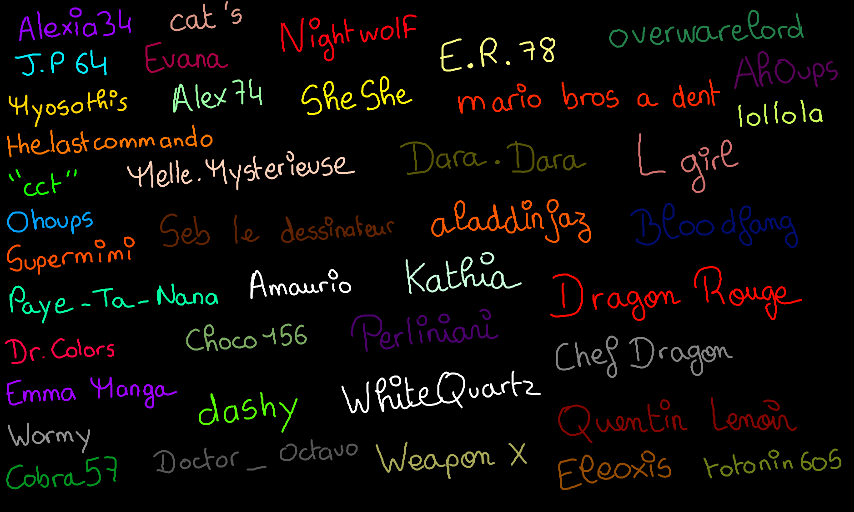 Alexia34 cat's Nightwolf E.R.78 overwarelord
J.P 64 Evana AhOups
Myosothis Alex74 SheShe mario bros a dent lollola
thelastcommando
"cct" Melle.Mysterieuse Dara.Dara L girl
Ohoups Seb le dessinateur aladdinjaz Bloodfang
Supermimi
Paye-Ta-Nana Amaurio Kathia Dragon Rouge
Dr.Colors Choco156 Perliniani Chef Dragon
Emma Manga dashy WhiteQuartz Quentin Lenoir
Wormy
Cobra57 Doctor_Octavo Weapon X Eleoxis rotonin605